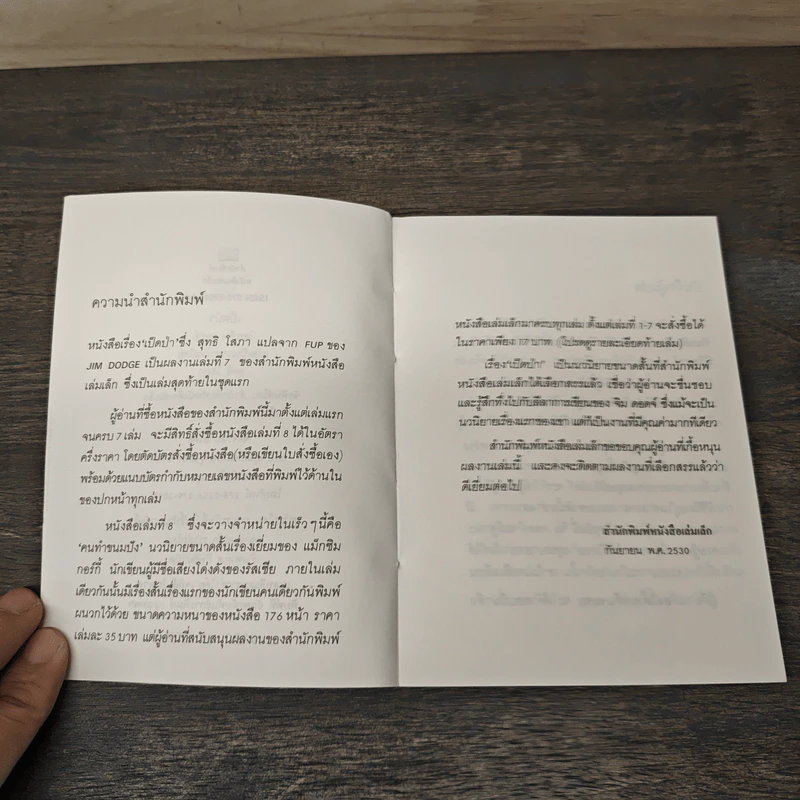 ความนำสำนักพิมพ์
หนังสือเรื่อง‘เป็ดป่า’ซึ่ง สุทธิ โสภา แปลจาก FUP ของ
JIM DODGE เป็นผลงานเล่มที่ 7 ของสำนักพิมพ์หนังสือ
เล่มเล็ก ซึ่งเป็นเล่มสุดท้ายในชุดแรก
ผู้อ่านที่ซื้อหนังสือของสำนักพิมพ์นี้มาตั้งแต่เล่มแรก
จนครบ 7 เล่ม จะมีสิทธิ์สั่งซื้อหนังสือเล่มที่ 8 ได้ในอัตรา
ครึ่งราคา โดยตัดบัตรสั่งซื้อหนังสือ(หรือเขียนใบสั่งซื้อเอง)
พร้อมด้วยแนบบัตรกำกับหมายเลขหนังสือที่พิมพ์ไว้ด้านใน
ของปกหน้าทุกเล่ม
หนังสือเล่มที่ 8 ซึ่งจะวางจำหน่ายในเร็วๆนี้คือ
‘คนทำขนมปัง’ นวนิยายขนาดสั้นเรื่องเยี่ยมของ แม็กซิม
กอร์กี้ นักเขียนผู้มีชื่อเสียงโด่งดังของรัสเซีย ภายในเล่ม
เดียวกันนั้นมีเรื่องสั้นเรื่องแรกของนักเขียนคนเดียวกันพิมพ์
ผนวกไว้ด้วย ขนาดความหนาของหนังสือ 176 หน้า ราคา
เล่มละ 35 บาท แต่ผู้อ่านที่สนับสนุนผลงานของสำนักพิมพ์
หนังสือเล่มเล็กมาครบทุกเล่ม ตั้งแต่เล่มที่ 1-7 จะสั่งซื้อได้
ในราคาเพียง 17 บาท (โปรดดูรายละเอียดท้ายเล่ม)
เรื่อง‘เป็ดป่า’ เป็นนวนิยายขนาดสั้นที่สำนักพิมพ์
หนังสือเล่มเล็กได้เลือกสรรแล้ว เชื่อว่าผู้อ่านจะชื่นชอบ
และรู้สึกทึ่งไปกับลีลาการเขียนของ จิม ดอดจ์ ซึ่งแม้จะเป็น
นวนิยายเรื่องแรกของเขา แต่ก็เป็นงานที่มีคุณค่ามากทีเดียว
สำนักพิมพ์หนังสือเล่มเล็กขอขอบคุณผู้อ่านที่เกื้อหนุน
ผลงานเล่มนี้ และคงจะติดตามผลงานที่เลือกสรรแล้วว่า
ดีเยี่ยมต่อไป
สำนักพิมพ์หนังสือเล่มเล็ก
กันยายน พ.ศ. 2530